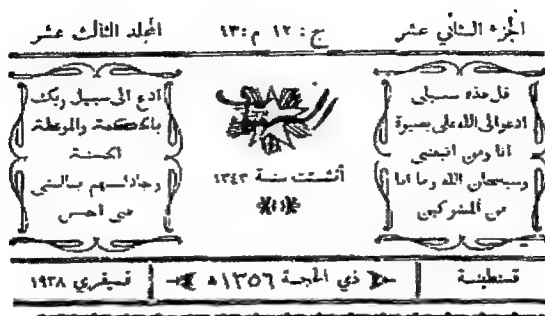 الجزء الثاني عشر
ج : ١٢ م : ١٣
المجلد الثالث عشر
قل هذه سبيلي
ادعو الى الله على بصيرة
انا ومن اتبعني
وسبحان الله وما انا
من المشركين
أنشئت سنة ١٣٤٣
ادع الى سبيل ربك
بالحكمة والموعظة
الحسنة
وجادلهم بالتي
هي احسن
قسنطينة
ذي الحجة ١٣٥٦ه
فيفري ١٩٣٨